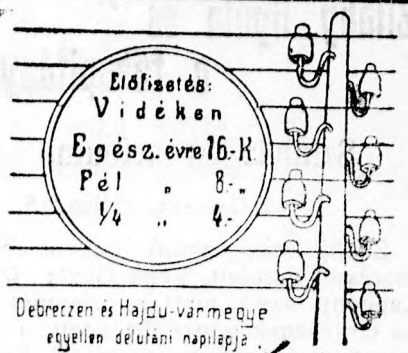 Előfizetés:
Vidéken
Egész. évre 16.-K
Fél „ 8.-„
1/4 „ 4.-
Debreczen és Hajdu-vármegye
egyetlen délutáni napilapja.